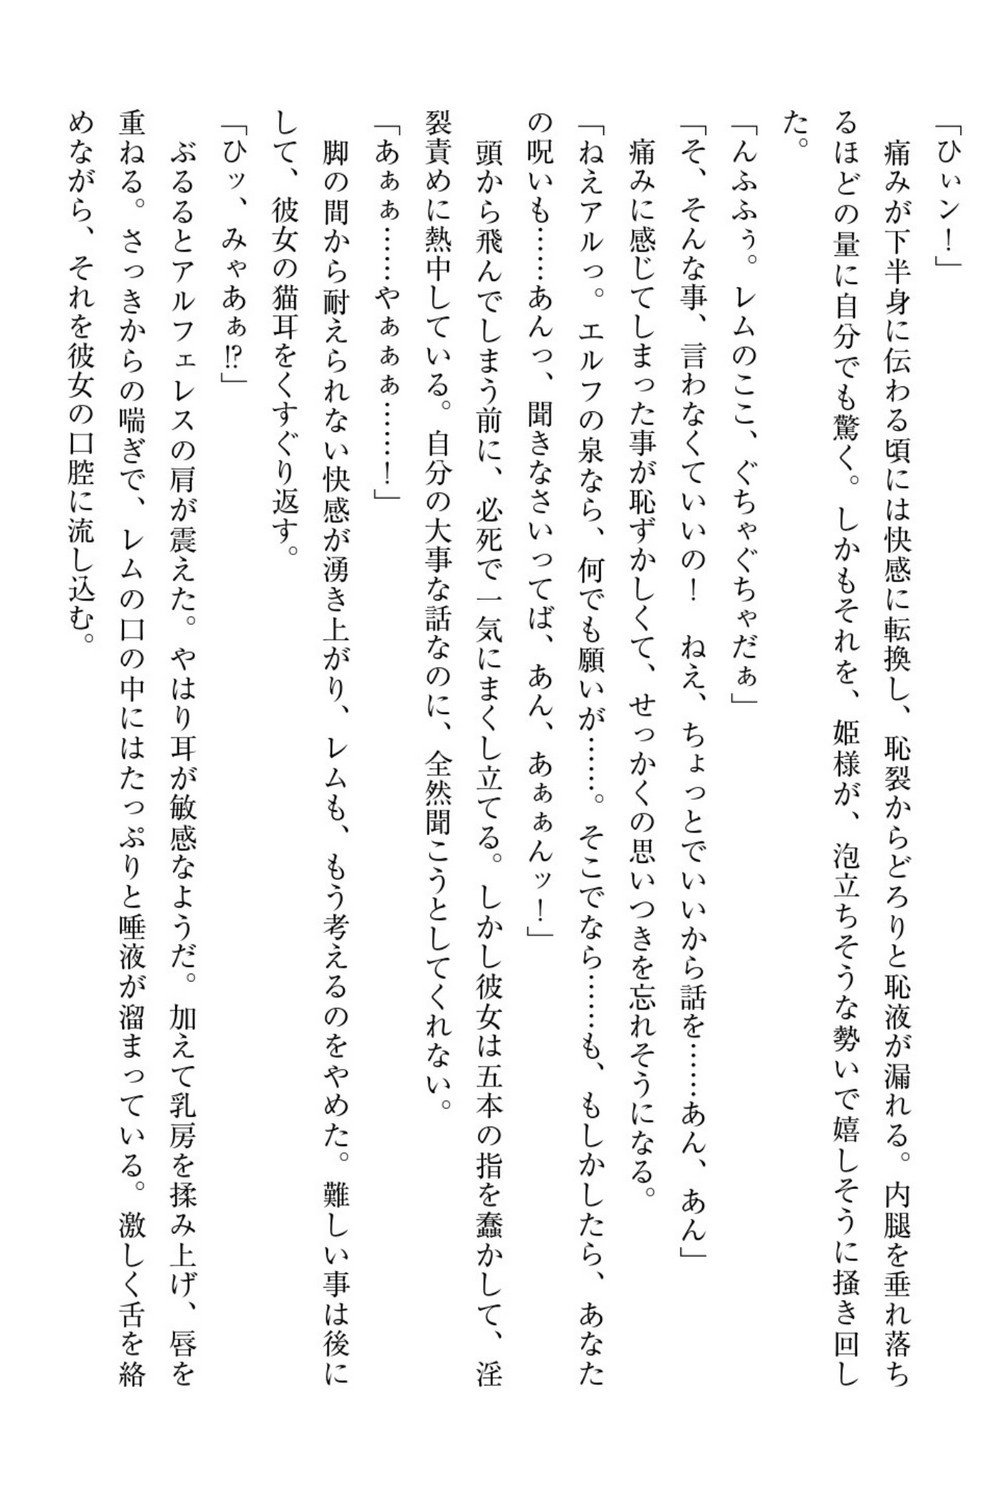 「ひぃン！」
　痛みが下半身に伝わる頃には快感に転換し、恥裂からどろりと恥液が漏れる。内腿を垂れ落ち
るほどの量に自分でも驚く。しかもそれを、姫様が、泡立ちそうな勢いで嬉しそうに掻き回し
た。
「んふふぅ。レムのここ、ぐちゃぐちゃだぁ」
「そ、そんな事、言わなくていいの！　ねえ、ちょっとでいいから話を……あん、あん」
　痛みに感じてしまった事が恥ずかしくて、せっかくの思いつきを忘れそうになる。
「ねえアルっ。エルフの泉なら、何でも願いが……。そこでなら……も、もしかしたら、あなた
の呪いも……あんっ、聞きなさいってば、あん、あぁぁんッ！」
　頭から飛んでしまう前に、必死で一気にまくし立てる。しかし彼女は五本の指を蠢かして、淫
裂責めに熱中している。自分の大事な話なのに、全然聞こうとしてくれない。
「あぁぁ……やぁぁぁ……！」
　脚の間から耐えられない快感が湧き上がり、レムも、もう考えるのをやめた。難しい事は後に
して、彼女の猫耳をくすぐり返す。
「ひッ、みゃあぁ!?」
　ぶるるとアルフェレスの肩が震えた。やはり耳が敏感なようだ。加えて乳房を揉み上げ、唇を
重ねる。さっきからの喘ぎで、レムの口の中にはたっぷりと唾液が溜まっている。激しく舌を絡
めながら、それを彼女の口腔に流し込む。